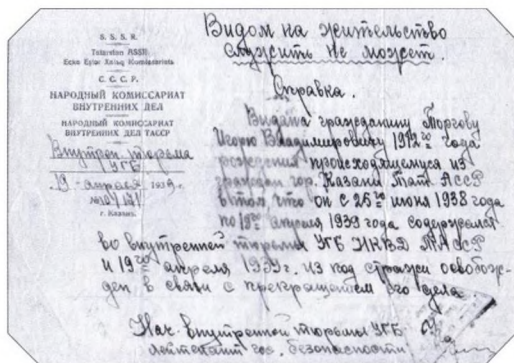 S. S. S. R.
Tatarstan ASSR
Ecke Eşlər Xalьq Komissariatь
С. С. С. Р.
НАРОДНЫЙ КОМИССАРИАТ
ВНУТРЕННИХ ДЕЛ
НАРОДНЫЙ КОМИССАРИАТ
ВНУТРЕННИХ ДЕЛ ТАССР
Внутрен. тюрьма
УГБ
19 - апреля 1939 г.
г. Казань.
Видом на жительство
служить не может.
Справка.
Выдана гражданину Торгову
Игорю Владимировичу 1912 го года
рождения происходящемуся из
граждан гор. Казани Тат. АССР
в том что он с 25 го июня 1938 года
по 19 ое апреля 1939 года содержался
во внутренней тюрьме УГБ НКВД ТАССР
и 19 го апреля 1939 г. из под стражи освобож-
ден в связи с прекращением его дела
Нач. внутренной тюрьмы УГБ
лейтенант гос. безопасности